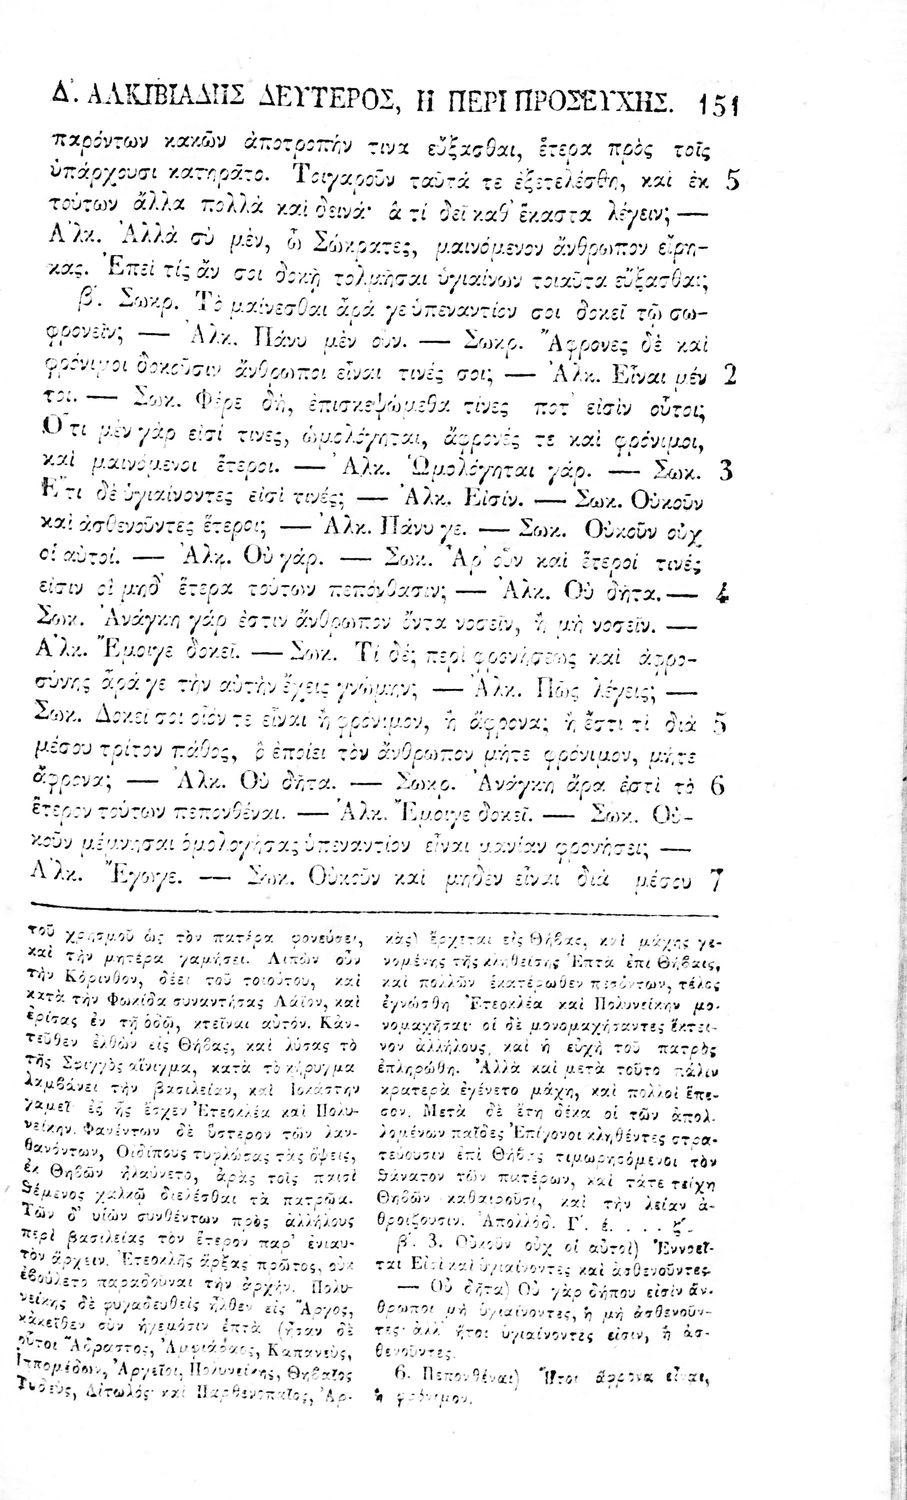 Δ΄. ΑΛΚΙΒΙΑΔΗΣ ΔΕΥΤΕΡΟΣ, Η ΠΕΡΙ ΠΡΟΣΕΥΧΗΣ. 151
παρόντων κακῶν ἀποτροπήν τινα εὔξασθαι, ἕτερα πρὸς τοῖς
ὑπάρχουσι κατηρᾶτο. Τοιγαροῦν ταῦτά τε ἐξετελέσθη, καὶ ἐκ 5
τούτων ἄλλα πολλὰ καὶ δεινά· ἃ τί δεῖ καθ' ἕκαστα λέγειν; —
Ἀλκ. Ἀλλὰ σὺ μὲν, ὦ Σώκρατες, μαινόμενον ἄνθρωπον εἴρη-
κας. Ἐπεὶ τίς ἄν σοι δοκῇ τολμῆσαι ὑγιαίνων τοιαῦτα εὔξασθαι;
β΄. Σωκρ. Τὸ μαίνεσθαι ἆρά γε ὑπεναντίον σοι δοκεῖ τῷ σω-
φρονεῖν; — Ἀλκ. Πάνυ μὲν οὖν. — Σωκρ. Ἄφρονες δὲ καὶ
φρόνιμοι δοκοῦσιν ἄνθρωποι εἶναι τινές σοι; — Ἀλκ. Εἶναι μέν 2
τοι. — Σωκ. Φέρε δὴ, ἐπισκεψώμεθα τίνες ποτ' εἰσὶν οὗτοι;
Ὅτι μὲν γὰρ εἰσί τινες, ὡμολόγηται, ἄφρονές τε καὶ φρόνιμοι,
καὶ μαινόμενοι ἕτεροι. — Ἀλκ. Ὡμολόγηται γάρ. — Σωκ. 3
Ἔτι δὲ ὑγιαίνοντες εἰσὶ τινές; — Ἀλκ. Εἰσίν. — Σωκ. Οὐκοῦν
καὶ ἀσθενοῦντες ἕτεροι; — Ἀλκ. Πάνυ γε. — Σωκ. Οὐκοῦν οὐχ
οἱ αὐτοί. — Ἀλκ. Οὐ γάρ. — Σωκ. Ἆρ' οὖν καὶ ἕτεροί τινές
εἰσιν οἳ μηδ' ἕτερα τούτων πεπόνθασιν; — Ἀλκ. Οὐ δῆτα. — 4
Σωκ. Ἀνάγκη γάρ ἐστιν ἄνθρωπον ὄντα νοσεῖν, ἢ μὴ νοσεῖν. —
Ἀλκ. Ἔμοιγε δοκεῖ. — Σωκ. Τί δέ; περὶ φρονήσεως καὶ ἀφρο-
σύνης ἆρά γε τὴν αὐτὴν ἔχεις γνώμην; — Ἀλκ. Πῶς λέγεις; —
Σωκ. Δοκεῖ σοι οἷόν τε εἶναι ἢ φρόνιμον, ἢ ἄφρονα; ἢ ἔστι τὶ διὰ 5
μέσου τρίτον πάθος, ὃ ἐποίει τὸν ἄνθρωπον μήτε φρόνιμον, μήτε
ἄφρονα; — Ἀλκ. Οὐ δῆτα. — Σωκρ. Ἀνάγκη ἄρα ἐστὶ τὸ 6
ἕτερον τούτων πεπονθέναι. — Ἀλκ. Ἔμοιγε δοκεῖ. — Σωκ. Οὐ-
κοῦν μέμνησαι ὁμολογήσας ὑπεναντίον εἶναι μανίαν φρονήσει; —
Ἀλκ. Ἔγωγε. — Σωκ. Οὐκοῦν καὶ μηδὲν εἶναι διὰ μέσου 7
τοῦ χρησμοῦ ὡς τὸν πατέρα φονεύσει,
καὶ τὴν μητέρα γαμήσει. Λιπὼν οὖν
τὴν Κόρινθον, δέει τοῦ τοιούτου, καὶ
κατὰ τὴν Φωκίδα συναντήσας Λάϊον, καὶ
ἐρίσας ἐν τῇ ὁδῷ, κτεῖναι αὐτόν. Κἀν-
τεῦθεν ἐλθὼν εἰς Θήβας, καὶ λύσας τὸ
τῆς Σφιγγὸς αἴνιγμα, κατὰ τὸ κήρυγμα
λαμβάνει τὴν βασιλείαν, καὶ Ἰοκάστην
γαμεῖ· ἐξ ἧς ἔσχεν Ἐτεοκλέα καὶ Πολυ-
νείκην. Φανέντων δὲ ὕστερον τῶν λαν-
θανόντων, Οἰδίπους τυφλώσας τὰς ὄψεις,
ἐκ Θηβῶν ἠλαύνετο, ἀρὰς τοῖς παισὶ
θέμενος χαλκῷ διελέσθαι τὰ πατρῷα.
Τῶν δ' υἱῶν συνθέντων πρὸς ἀλλήλους
περὶ βασιλείας τὸν ἕτερον παρ' ἐνιαυ-
τὸν ἄρχειν. Ἐτεοκλῆς ἄρξας πρῶτος, οὐκ
ἐβούλετο παραδοῦναι τὴν ἀρχήν. Πολυ-
νείκης δὲ φυγαδευθεὶς ἦλθεν εἰς Ἄργος,
κἀκεῖθεν σὺν ἡγεμόσιν ἑπτὰ (ἦσαν δὲ
οὗτοι Ἄδραστος, Ἀμφιάραος, Καπανεὺς,
Ἱππομέδων, Ἀργεῖοι, Πολυνείκης, Θηβαῖος
Τυδεὺς, Αἰτωλός· καὶ Παρθενοπαῖος, Ἀρ-
κὰς) ἔρχεται εἰς Θήβας, καὶ μάχης γε-
νομένης τῆς κληθείσης Ἑπτὰ ἐπὶ Θήβαις,
καὶ πολλῶν ἑκατέρωθεν πεσόντων, τέλος
ἐγνώσθη Ἐτεοκλέα καὶ Πολυνείκην μο-
νομαχῆσαι· οἱ δὲ μονομαχήσαντες ἔκτει-
νον ἀλλήλους, καὶ ἡ εὐχὴ τοῦ πατρὸς
ἐπληρώθη. Ἀλλὰ καὶ μετὰ τοῦτο πάλιν
κρατερὰ ἐγένετο μάχη, καὶ πολλοὶ ἔπε-
σον. Μετὰ δὲ ἔτη δέκα οἱ τῶν ἀπολ-
λομένων παῖδες Ἐπίγονοι κληθέντες στρα-
τεύουσιν ἐπὶ Θήβας τιμωρησόμενοι τὸν
θάνατον τῶν πατέρων, καὶ τάτε τείχη
Θηβῶν καθαιροῦσι, καὶ τὴν λείαν ἀ-
θροίζουσιν. Ἀπολλόδ. Γ. έ. . . . ζ΄.
β΄. 3. Οὐκοῦν οὐχ οἱ αὐτοί) Ἐννοεῖ-
ται Εἰσὶ καὶ ὑγιαίνοντες καὶ ἀσθενοῦντες.
— Οὐ δῆτα) Οὐ γὰρ δήπου εἰσὶν ἄν-
θρωποι μὴ ὑγιαίνοντες, ἢ μὴ ἀσθενοῦν-
τες· ἀλλ' ἤτοι ὑγιαίνοντες εἰσιν, ἢ ἀσ-
θενοῦντες.
6. Πεπονθέναι) Ἤτοι ἄφρονα εἶναι,
ἢ φρόνιμον.